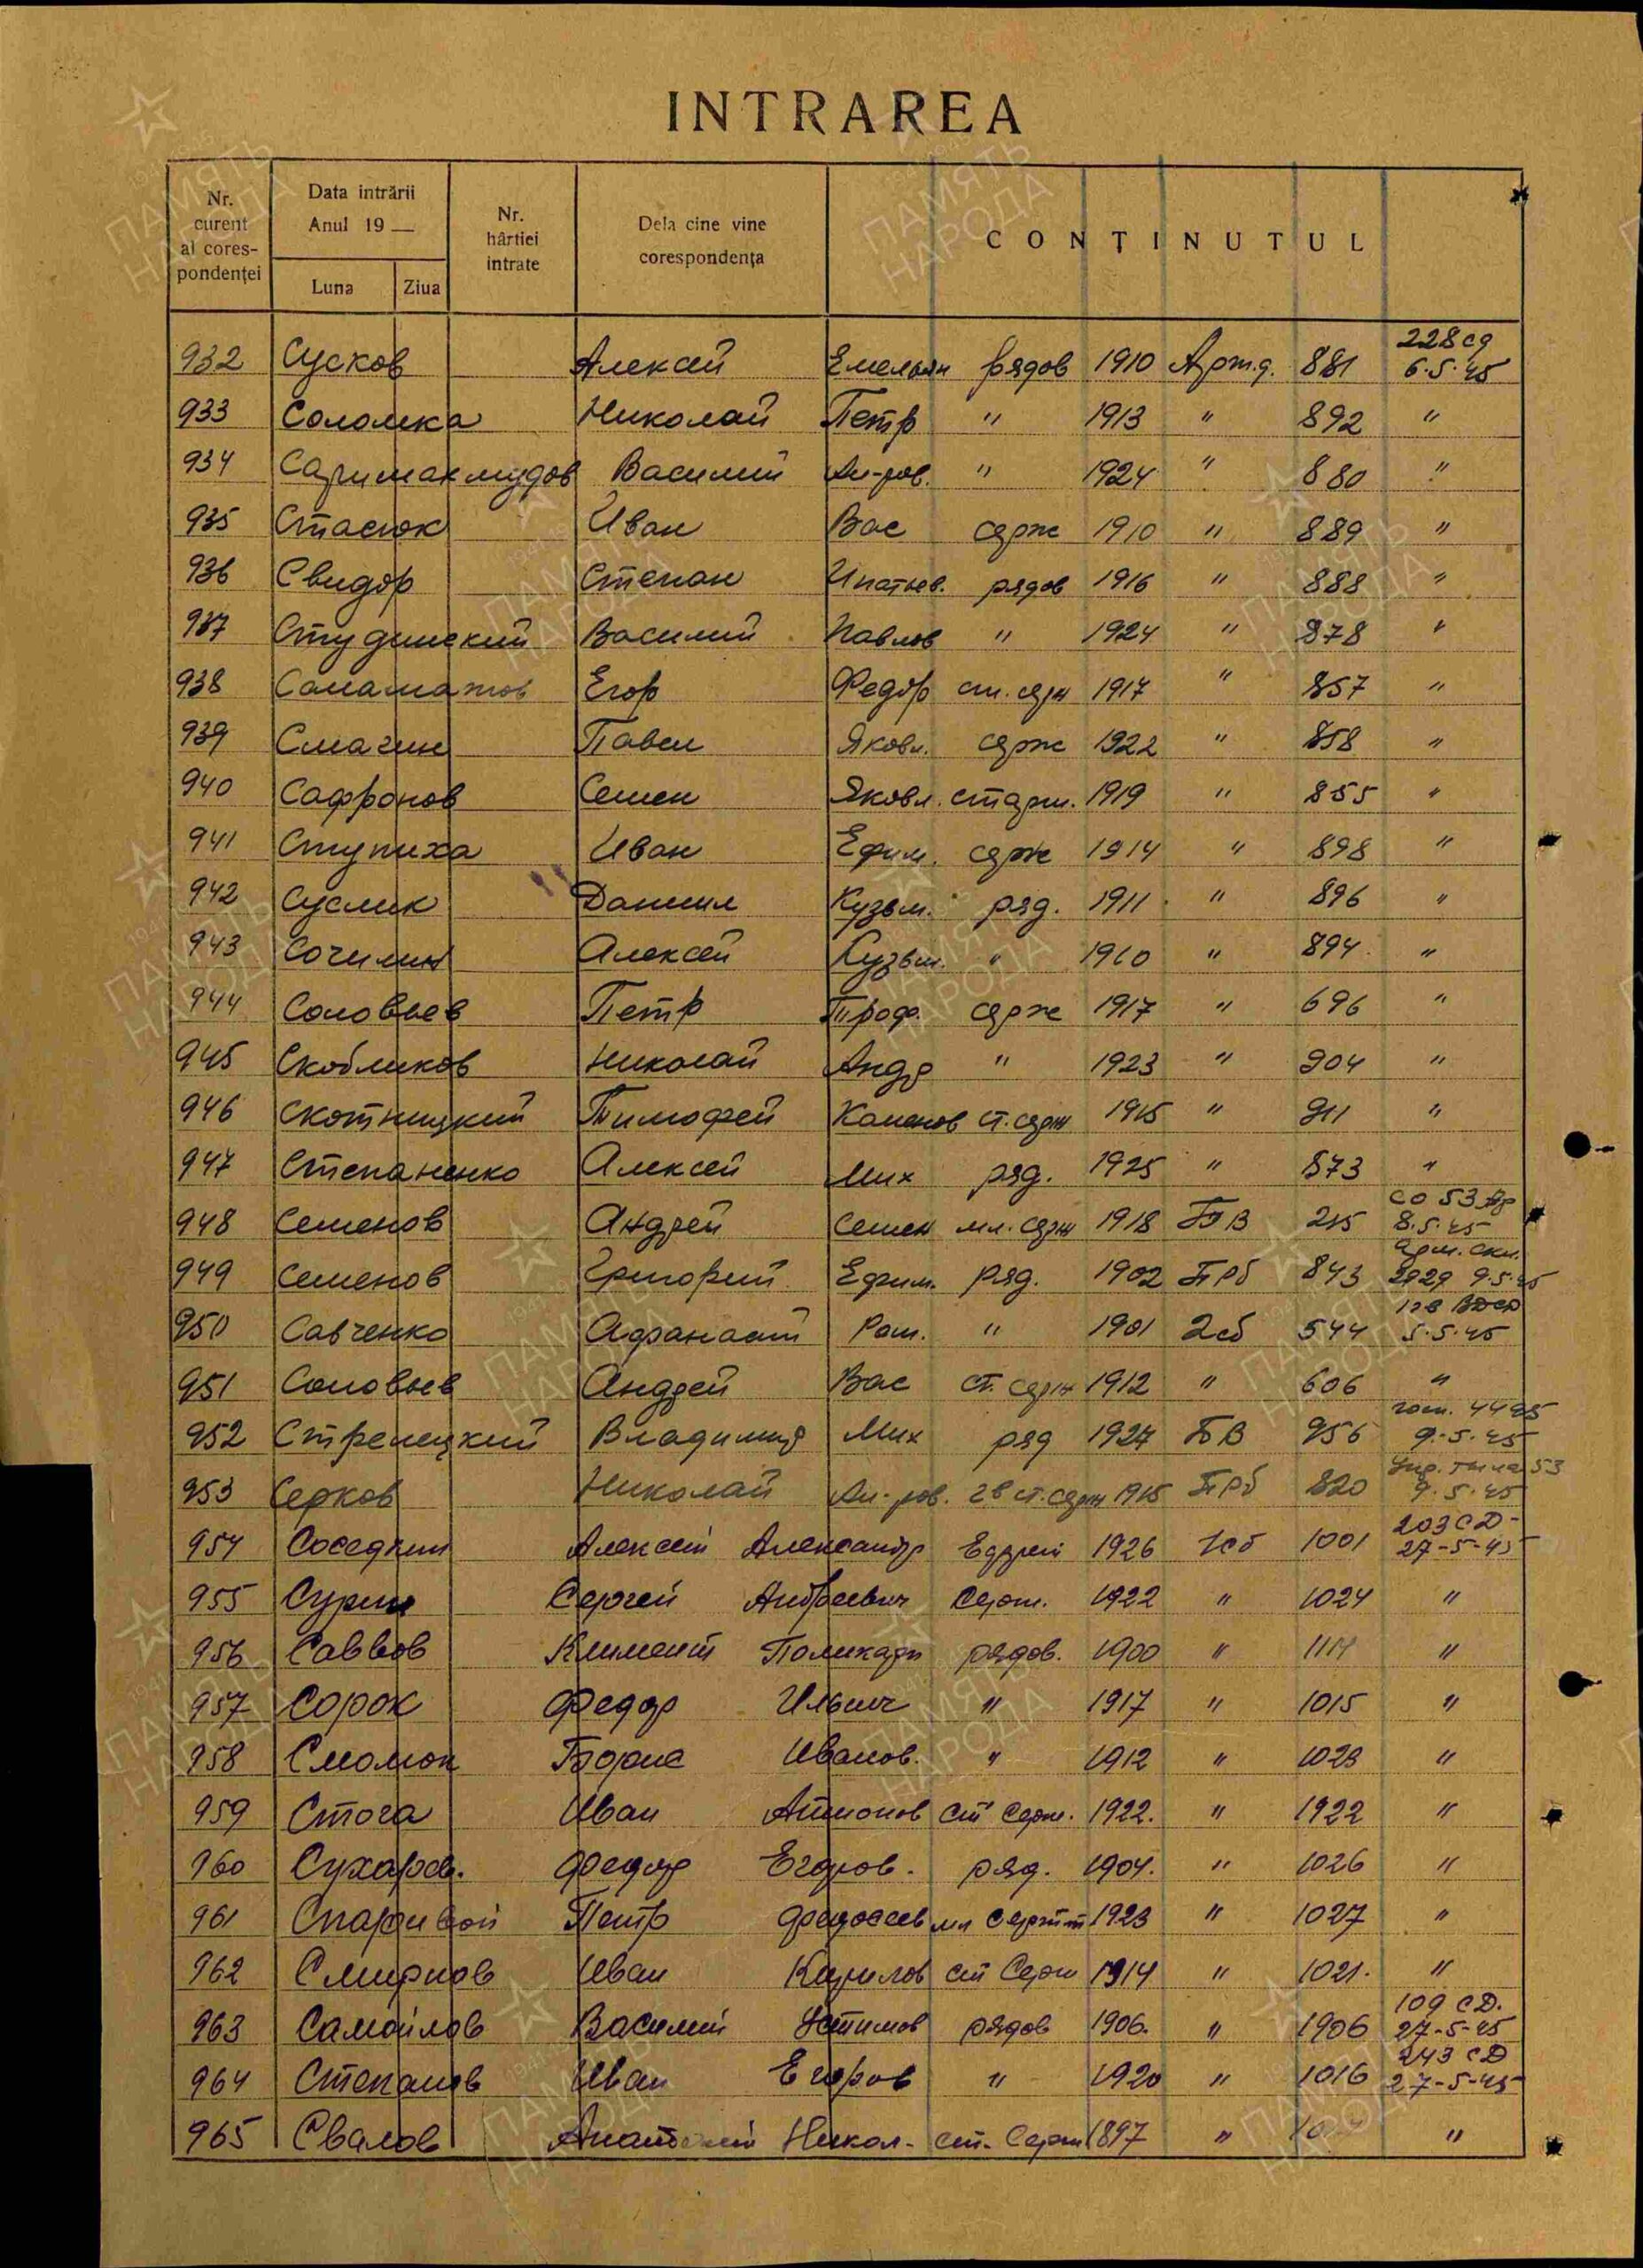 INTRAREA
Nr. curent al cores- pondenței
Data intrării Anul 19 —
Luna Ziua
Nr. hârtiei intrate
Dela cine vine corespondența
CONȚINUTUL
932 Сусков Алексей Емельян рядов 1910 Арт.д. 881 228 сд 6.5.45
933 Соломка Николай Петр " 1913 " 892 "
934 Саримахмудов Василий Ал-ров. " 1924 " 880 "
935 Стасюк Иван Вас серж 1910 " 889 "
936 Свидор Степан Ипатьев. рядов 1916 " 888 "
937 Студинский Василий Павлов " 1924 " 878 "
938 Саламатов Егор Федор ст. серж 1917 " 857 "
939 Смагин Павел Яковл. серж 1922 " 858 "
940 Сафронов Семен Яковл. старш. 1919 " 855 "
941 Ступиха Иван Ефим. серж 1914 " 898 "
942 Суслик Даниил Кузьм. ряд. 1911 " 896 "
943 Сочилин Алексей Кузьм. " 1910 " 894 "
944 Соловьев Петр Троф. серж 1917 " 696 "
945 Скобликов Николай Андр " 1923 " 904 "
946 Скотницкий Тимофей ст. серж 1915 " 911 "
947 Степаненко Алексей Мих ряд. 1925 " 873 "
948 Семенов Андрей Семен мл. серж 1918 ПВ 215 СО 53 Ар 8.5.45
949 Семенов Григорий Ефим. ряд. 1902 ПРб 843 арм. скл. 2929 9.5.45
950 Савченко Афанасий Ром. " 1901 2сб 544 5.5.45
951 Соловьев Андрей Вас ст. серж 1912 " 606 "
952 Стрелецкий Владимир Мих ряд 1927 БВ 956 госп. 4495 9.5.45
953 Серков Николай Ал-ров. гв ст. серж 1915 ПРб 820 Упр. тыла 53 9.5.45
954 Соседкин Алексей Александр 1926 1сб 1001 203 СД - 27-5-45
955 Сурин Сергей Андреевич Серж. 1922 " 1024 "
956 Саввов Климент Поликарп рядов. 1900 " "
957 Сорок Федор Ильич " 1917 " 1015 "
958 Смолюк Борис Иванов. " 1912 " 1023 "
959 Стога Иван Антонов ст Серж. 1922. " 1922 "
960 Сухарев. Федор Егоров. ряд. 1904. " 1026 "
961 Петр Федосеев мл Сержт 1923 " 1027 "
962 Смирнов Иван Кирилов ст Серж 1914 " 1021. "
963 Самойлов Василий Устимов рядов 1906. " 1906 109 СД. 27-5-45
964 Степанов Иван Егоров " 1920 " 1016 243 СД 27-5-45
965 Свалов Анатолий Никол- ст. Серж 1897 " "